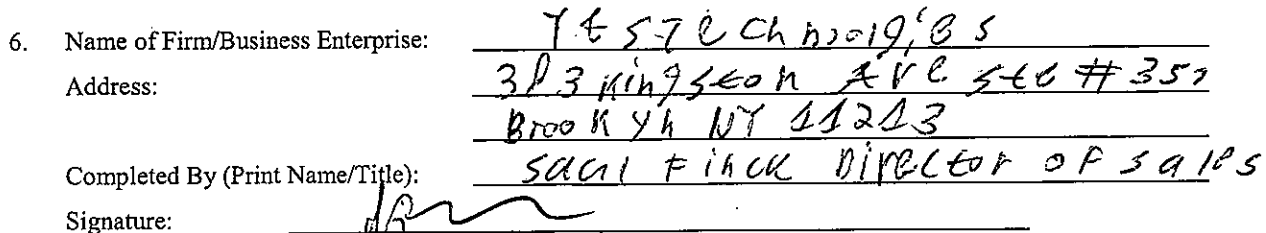 6. Name of Firm/Business Enterprise: YtS Technologies
Address: 383 Kingston Ave Ste # 357
Brooklyn NY 11213
Completed By (Print Name/Title): Saul Finck Director of sales
Signature: